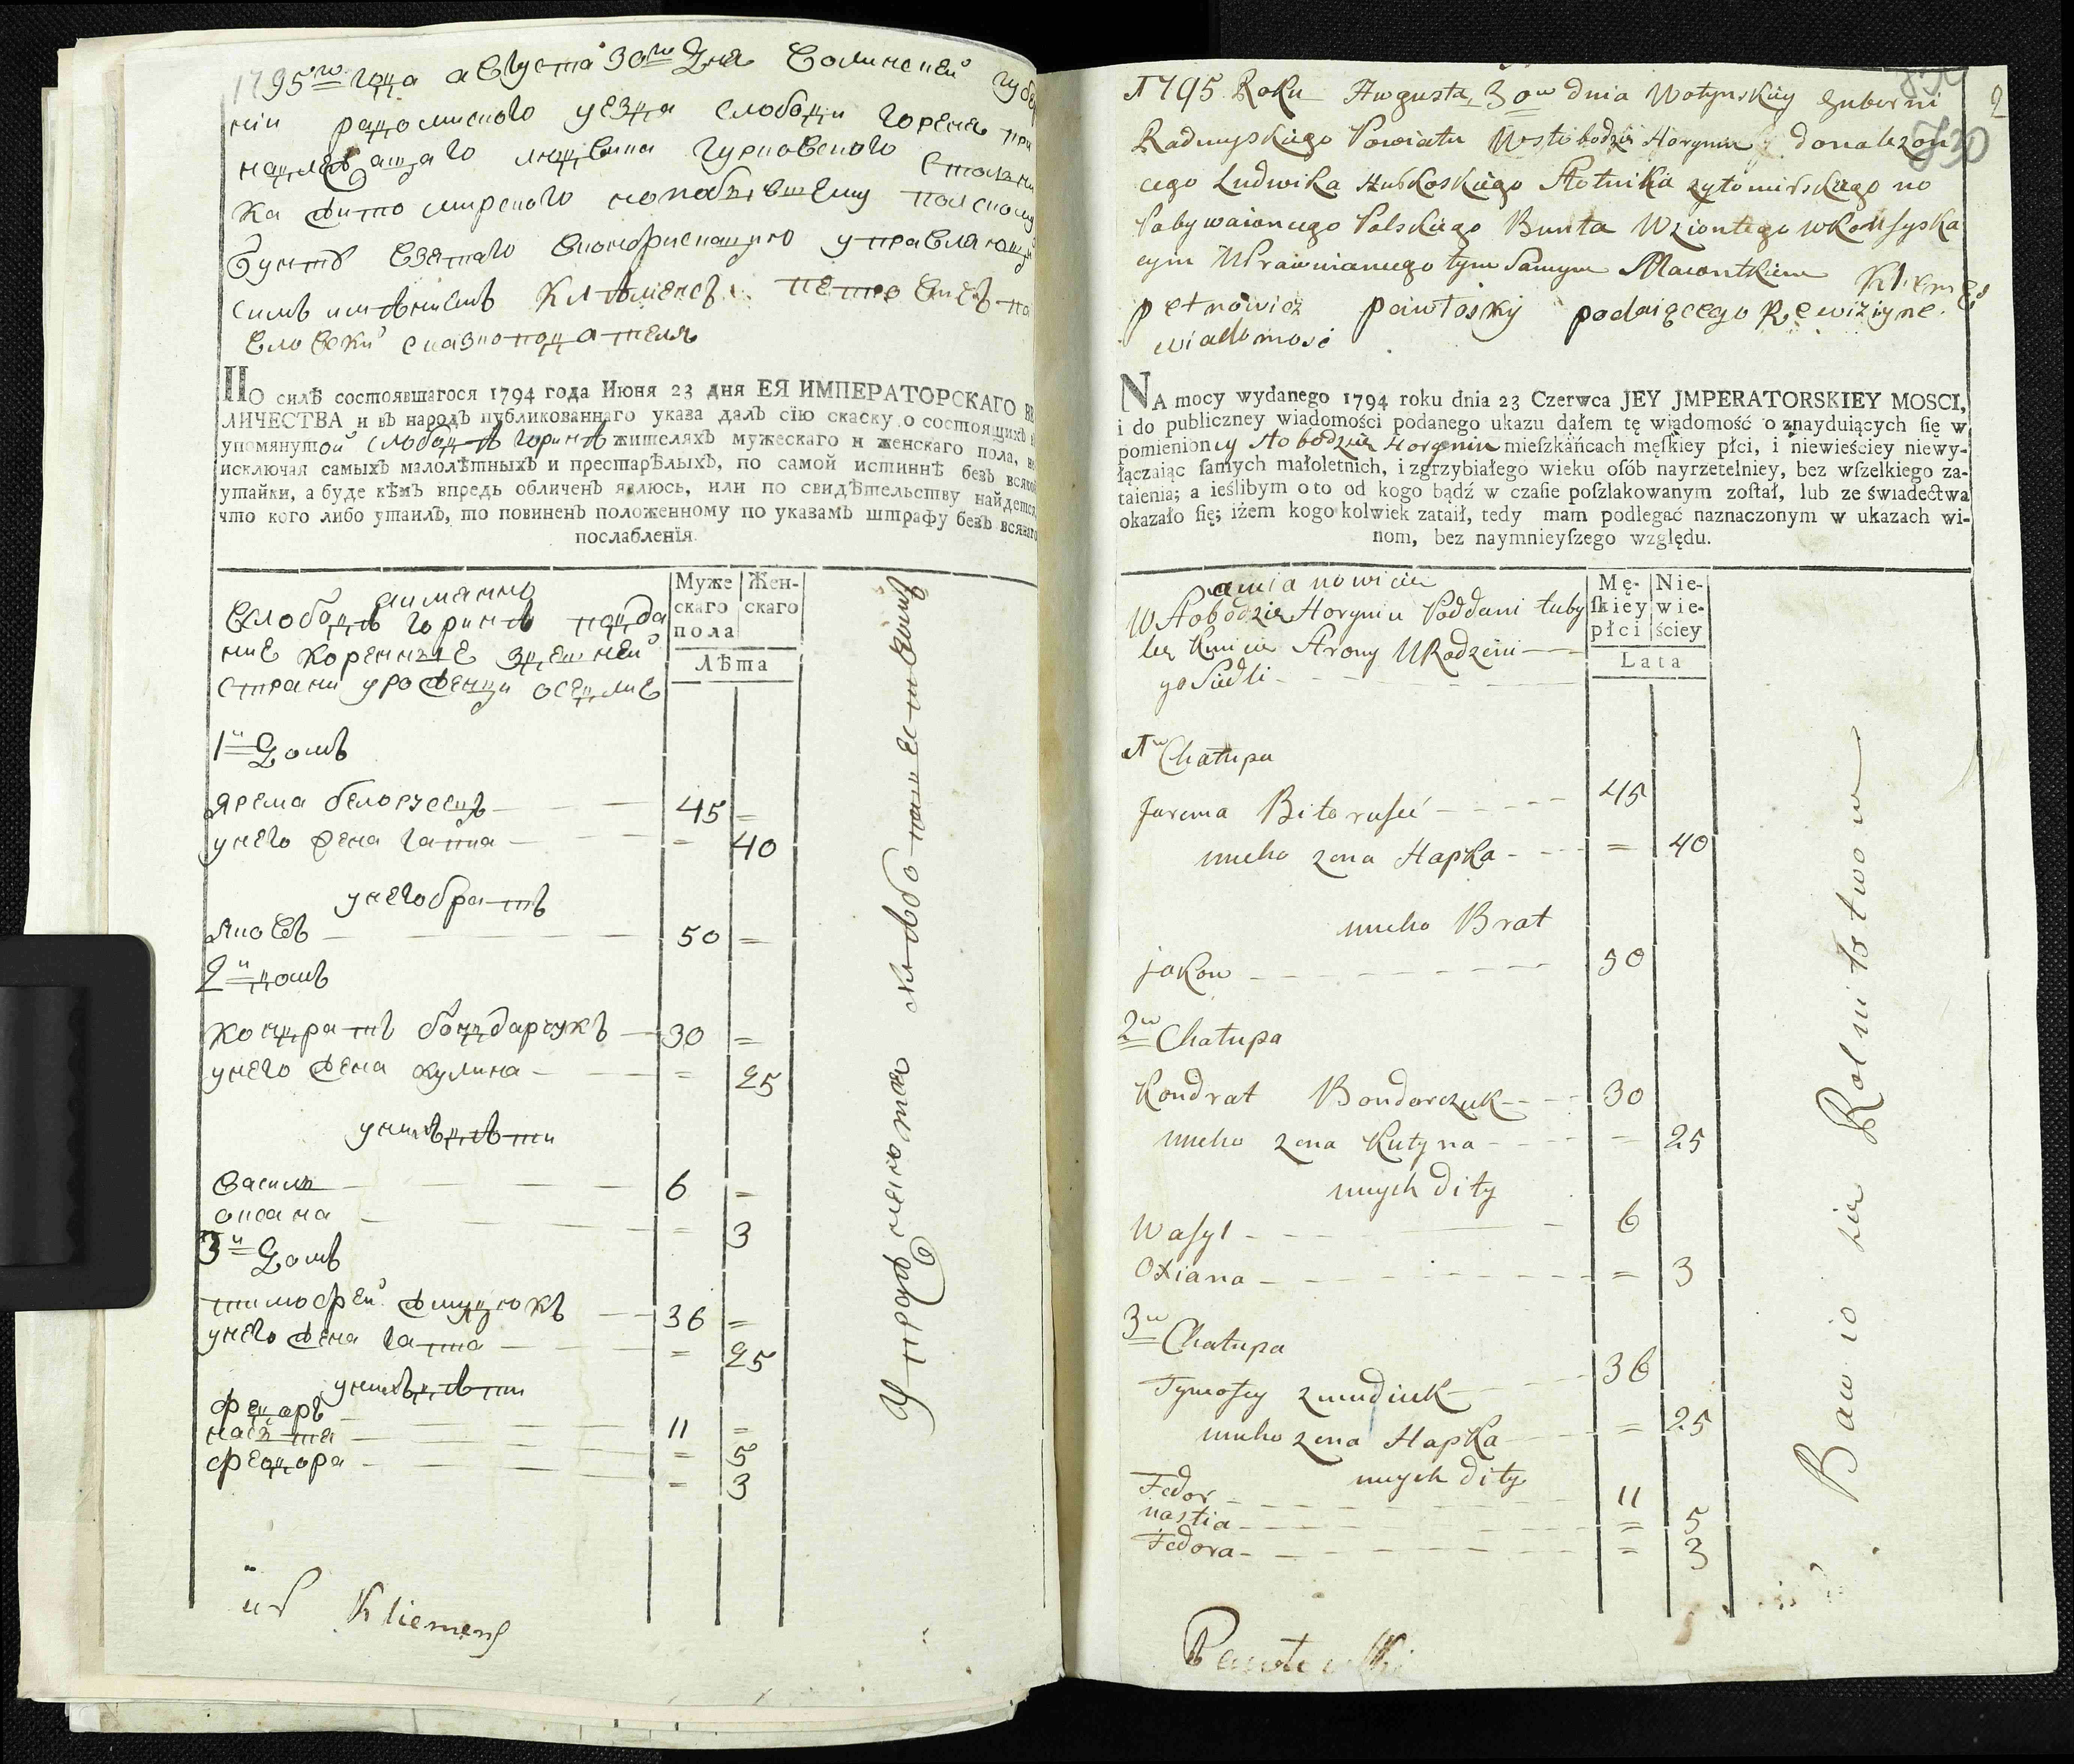 1795го года августа 30го Дня Волинской губер
ніи радомиского уезда слободи горена при
надлежащаго людвика гурковского столни
ка житомирского
бунтѣ взятаго вконфискацію управляющ
симъ имѣниемъ Клѣменсъ петровичъ па
вловский сказкоподателя
По силѣ состоявшагося 1794 года Июня 23 дня ЕЯ ИМПЕРАТОРСКАГО ВЕ
ЛИЧЕСТВА и въ народъ публикованнаго указа далъ сїю скаску о состоящихъ в
упомянутой слободѣ горинѣ жителяхъ мужескаго и женскаго пола, не
исключая самыхъ малолѣтныхъ и престарѣлыхъ, по самой истиннѣ безъ всякой
утайки, а буде кѣмъ впредь обличенъ явлюсь, или по свидѣтельству найдется
что кого либо утаилъ, то повиненъ положенному по указамъ штрафу безъ всякаго
послабленїя.
аимянно
Слободѣ горинѣ подда
ние коренние здешней
страни урожденци оседлие
Муже
скаго
пола
Жен-
скаго
Лѣта
1й Домъ
Ярема белорусецъ 45 =
унего жена гапка = 40
унегобратъ
Яковъ 50 =
2й домъ
кондратъ бондарчукъ 30 =
унего жена кулина = 25
унихъдѣти
Василь 6 =
оксана = 3
3й Домъ
тимофей жмудюкъ 36 =
унего жена гапка = 25
унихъдѣти
федоръ 11 =
настя = 5
федора = 3
Упражняются хлѣбопашествомъ
Kliemens
1795 Roku Awgusta 30w dnia Wołynskiey guberni
Radmyskiego Powiatu Wsłobodzie Horyniu donalezon
cego Ludwika Hubkoskiego Stolnika zytomirskiego no
Pabywaioncego Polskiego Bunta Wziontego wKonfyska
cyiu UPrawniancego tym Samym Maiontkiem Klemes
petrowicz pawłoskÿ podaięcego Rewiziyne
wiadomosć
NA mocy wydanego 1794 roku dnia 23 Czerwca JEY JMPERATORSKIEY MOSCI,
i do publiczney wiadomości podanego ukazu dałem tę wiadomość o znayduiących ſię w
pomienioney słobodzie Horyniu mieſzkańcach męſkiey płci, i niewieściey niewy-
łączaiąc ſamych małoletnich, i zgrzybiałego wieku oſób nayrzetelniey, bez wſzelkiego za-
taienia; a ieślibym o to od kogo bądź w czaſie poſzlakowanym zoſtał, lub ze świadectwa
okazało ſię; iżem kogo kolwiek zataił, tedy mam podlegać naznaczonym w ukazach wi-
nom, bez naymnieyſzego względu.
amianowicie
WSłobodzie Horyniu Poddani tuby
lcy Kmicie Strony URodzeni
yosiedli
Mę-
ſkiey
płci
Nie-
wie-
ściey
Lata
1w Chałupa
Jarema Biłorusć 45
nueho zena Hapka = 40
nueho Brat
jakow 50
2w Chałupa
Kondrat Bondarczuk 30
nueho zena Kułyna = 25
unych dity
Wasyl 6
Oxiana = 3
3w Chałupa
Tymosey zmudiuk 36
nueho zena Hapka = 25
unych dity
Fedor 11
nastia = 5
Fedora = 3
Bawio sie Rolnitstwow
Pawłowski
2